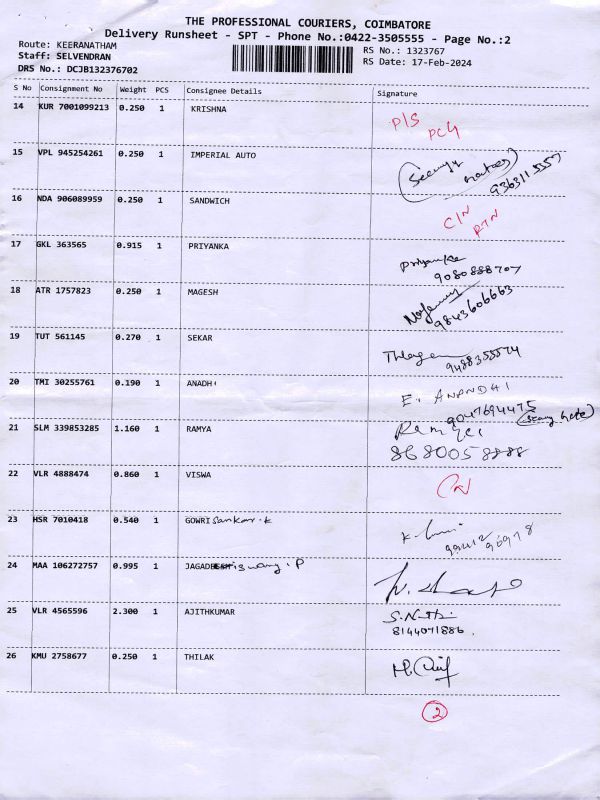 THE PROFESSIONAL COURIERS, COIMBATORE
Delivery Runsheet - SPT - Phone No.:0422-3505555 - Page No.:2
Route: KEERANATHAM
Staff: SELVENDRAN
DRS No.: DCJB132376702
RS No.: 1323767
RS Date: 17-Feb-2024
S No Consignment No Weight PCS Consignee Details Signature
14 KUR 7001099213 0.250 1 KRISHNA
P/S
15 VPL 945254261 0.250 1 IMPERIAL AUTO
16 NDA 906089959 0.250 1 SANDWICH
C/N
RTN
17 GKL 363565 0.915 1 PRIYANKA
Priyanka
9080888707
18 ATR 1757823 0.250 1 MAGESH
9843606663
19 TUT 561145 0.270 1 SEKAR
20 TMI 30255761 0.190 1 ANADHI
E. ANANDHI
9047694475
21 SLM 339853285 1.160 1 RAMYA
Ramya
8680058888
22 VLR 4888474 0.860 1 VISWA
23 HSR 7010418 0.540 1 GOWRI Sankar.K
24 MAA 106272757 0.995 1
25 VLR 4565596 2.300 1 AJITHKUMAR
8144071886.
26 KMU 2758677 0.250 1 THILAK
2